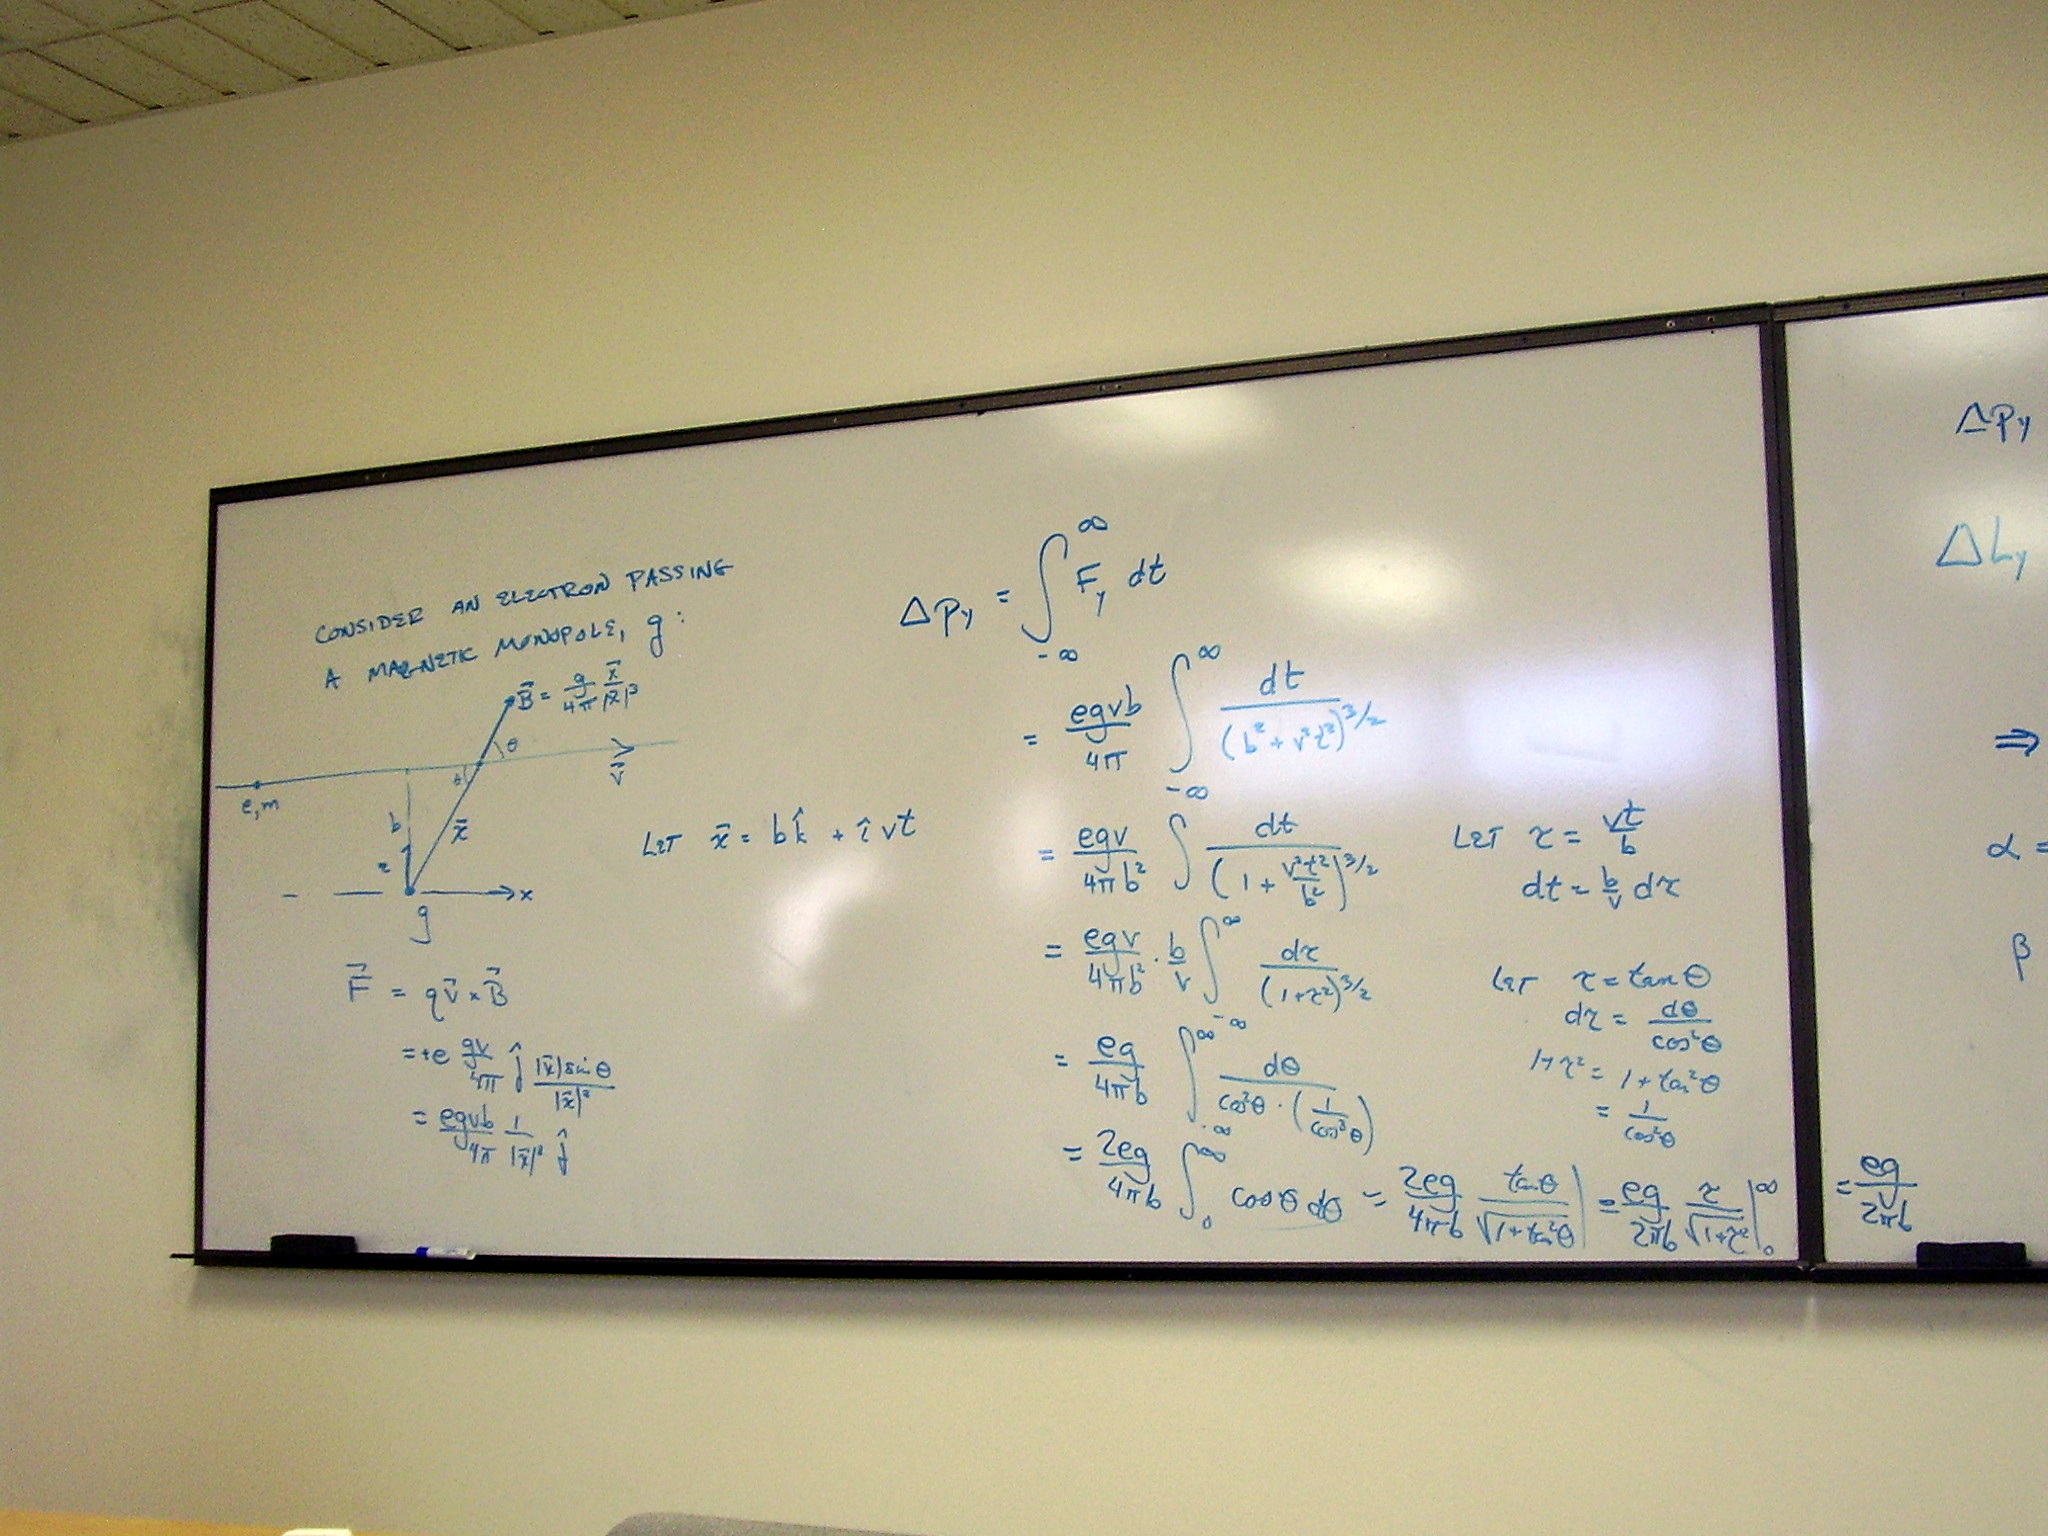 CONSIDER AN ELECTRON PASSING
A MAGNETIC MONOPOLE, g:
B⃗ = g/4π x⃗/|x⃗|³
θ
v⃗
e,m
b
x⃗
z
x
g
F⃗ = qv⃗ × B⃗
= +e gv/4π ĵ |x⃗| sin θ/|x⃗|³
= egvb/4π 1/|x⃗|³ ĵ
LET x⃗ = bk̂ + îvt
Δp_y = ∫_{-∞}^{∞} F_y dt
= egvb/4π ∫_{-∞}^{∞} dt/(b² + v²t²)^{3/2}
= egv/4πb² ∫ dt/(1 + v²t²/b²)^{3/2}
LET x = vt/b
dt = b/v dx
= egv/4πb² · b/v ∫_{-∞}^{∞} dx/(1+x²)^{3/2}
LET x = tan θ
dx = dθ/cos²θ
1+x² = 1 + tan²θ
= 1/cos²θ
= eg/4πb ∫_{-∞}^{∞} dθ/cos²θ · (1/cos³θ)
= 2eg/4πb ∫_0^∞ cos θ dθ = 2eg/4πb tan θ/√(1+tan²θ) | = eg/2πb x/√(1+x²) |_0^∞ = eg/2πb
Δp_y
ΔL_y
⇒
α =
β